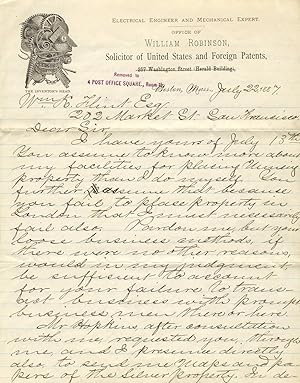 ELECTRICAL ENGINEER AND MECHANICAL EXPERT.
OFFICE OF
WILLIAM ROBINSON,
Solicitor of United States and Foreign Patents,
257 Washington Street (Herald Building),
Removed to
4 POST OFFICE SQUARE, Room
Boston, Mass. July 22 1887
THE INVENTOR'S HEAD
Wm. K. Flint Esq
202 Market St. San Francisco
Dear Sir,
I have yours of July 13th
You assume to know more about
my facilities for placing mining
property than I do myself. You
further assume that because
you fail to place property in
London that I must necessarily
fail also. Pardon me, but your
loose business methods, if
there were no other reasons,
would in my judgment
be sufficient to account
for your failure to trans-
act business with prompt
business men there or here.
Mr Hopkins, after consultation
with me, requested you, through
me, and I presume directly
also, to send me Maps and pa-
pers of the Silver property. I